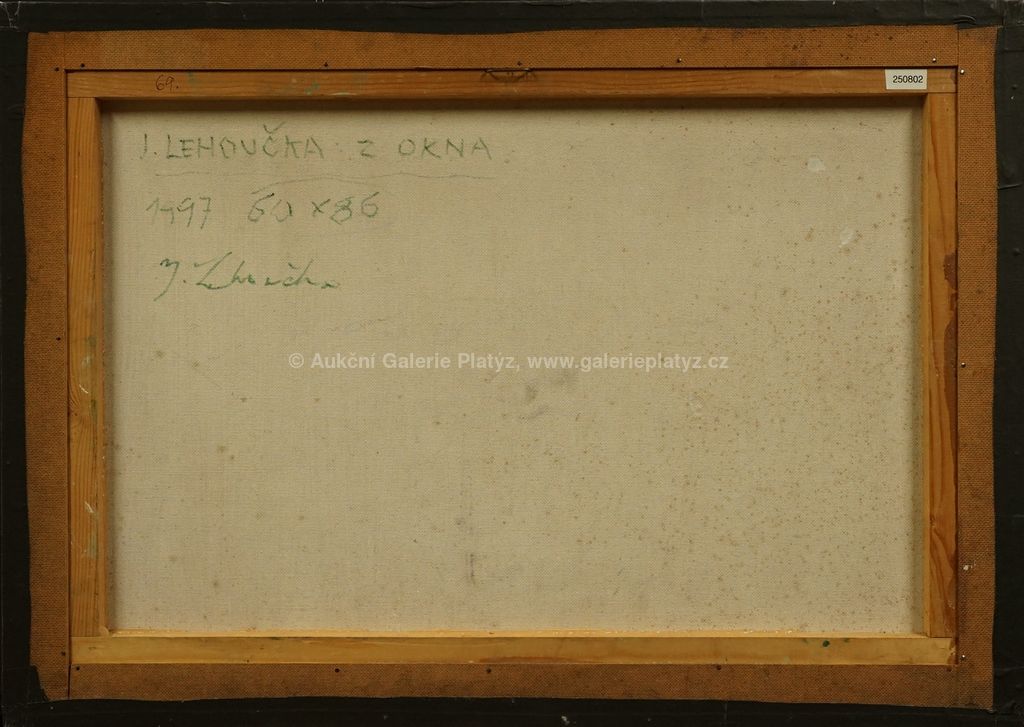 69.
250802
J. LEHOUČKA Z OKNA
1997 60 x 86
J. Lehoučka
© Aukční Galerie Platýz, www.galerieplatyz.cz